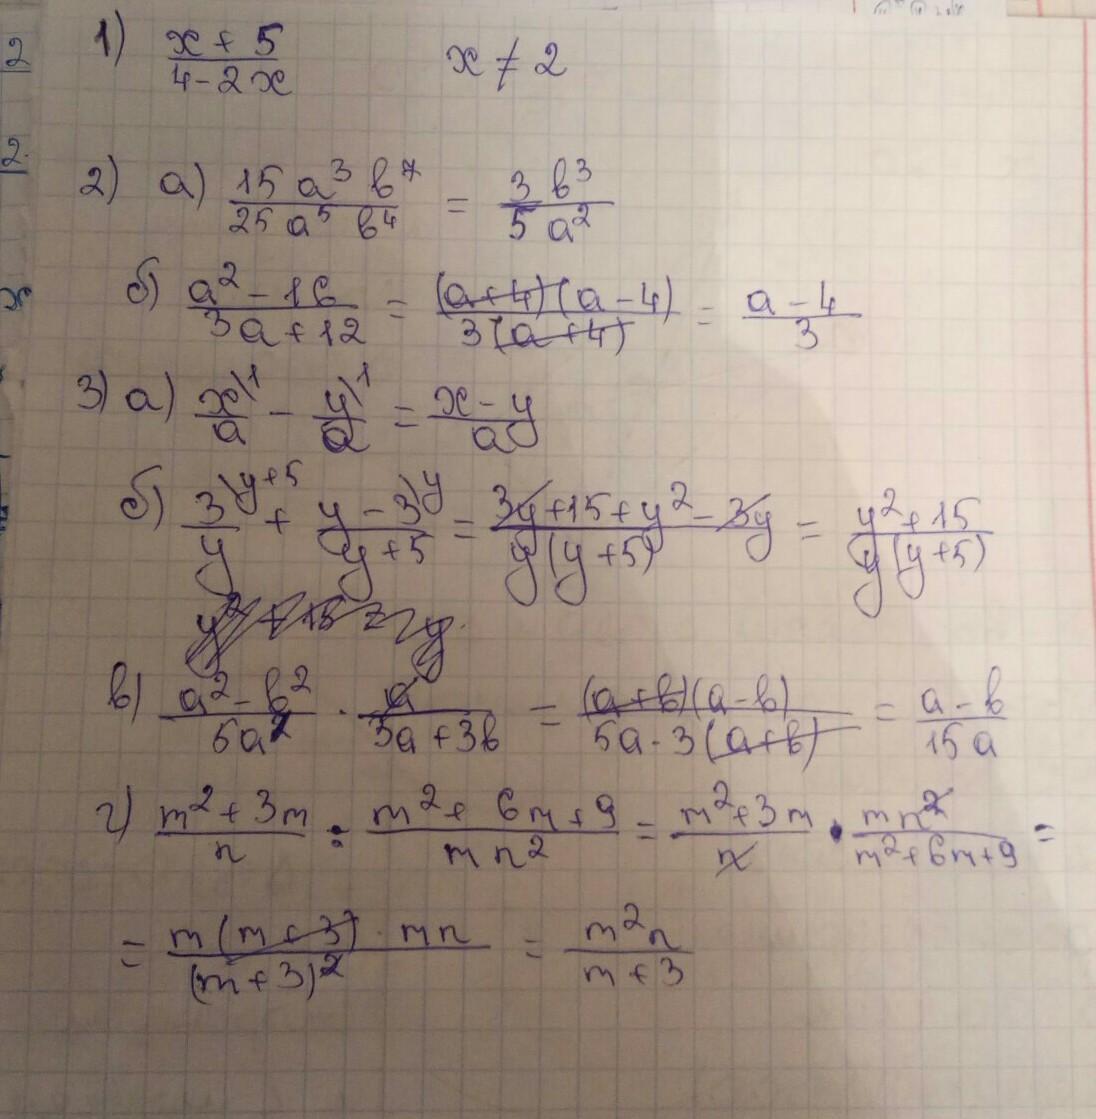 1) (x + 5)/(4 - 2x) x ≠ 2
2) а) (15 a³ b⁷)/(25 a⁵ b⁴) = (3 b³)/(5 a²)
б) (a² - 16)/(3a + 12) = ((a+4)(a - 4))/(3(a+4)) = (a - 4)/3
3) а) x/a \1 - y/a \1 = (x - y)/(ay)
б) 3/y \y+5 + (y - 3)/(y + 5) \y = (3y + 15 + y² - 3y)/(y(y+5)) = (y² + 15)/(y(y+5))
в) (a² - b²)/(5a²) · a/(3a + 3b) = ((a+b)(a-b))/(5a · 3(a+b)) = (a - b)/(15a)
г) (m² + 3m)/n : (m² + 6m + 9)/(mn²) = (m² + 3m)/n · (mn²)/(m² + 6m + 9) =
= (m(m + 3) · mn)/((m + 3)²) = (m²n)/(m + 3)